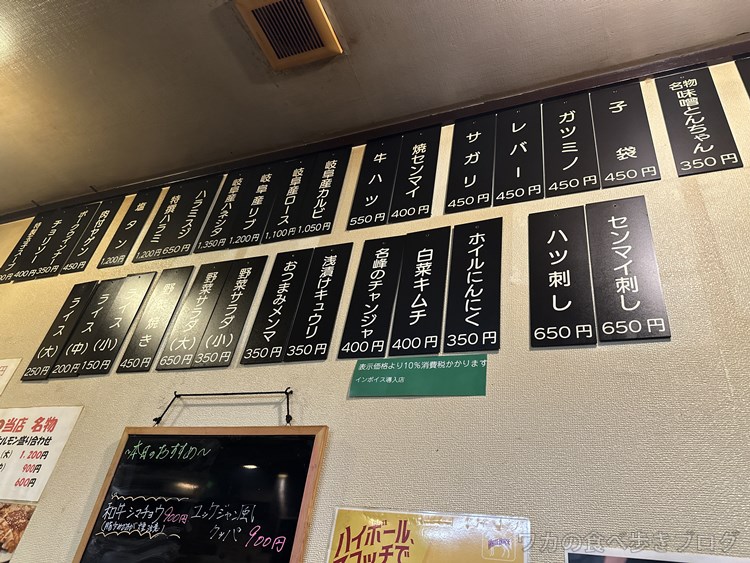 名物
味噌とんちゃん
350円
子袋
450円
ガツミノ
450円
レバー
450円
サガリ
450円
焼センマイ
400円
牛ハツ
550円
岐阜産カルビ
1,050円
岐阜産ロース
1,100円
岐阜産リブ
1,200円
岐阜産ハネシタ
1,350円
ハラミスジ
650円
特撰ハラミ
1,200円
塩タン
1,200円
肉付ヤゲン
450円
ポークウィンナー
350円
チョリソー
400円
センマイ刺し
650円
ハツ刺し
650円
ホイルにんにく
350円
白菜キムチ
400円
名峰のチャンジャ
400円
浅漬けキュウリ
350円
おつまみメンマ
350円
野菜サラダ(小)
350円
野菜サラダ(大)
650円
野菜焼き
450円
ライス(小)
150円
ライス(中)
200円
ライス(大)
250円
表示価格より10%消費税かかります
インボイス導入店
当店 名物
ホルモン盛り合わせ
(大) 1,200円
900円
600円
~本日のおすすめ~
和牛シマチョウ 900円
ユッケジャン風
クッパ 900円
ハイボール、
スコッチで
ワカの食べ歩きブログ